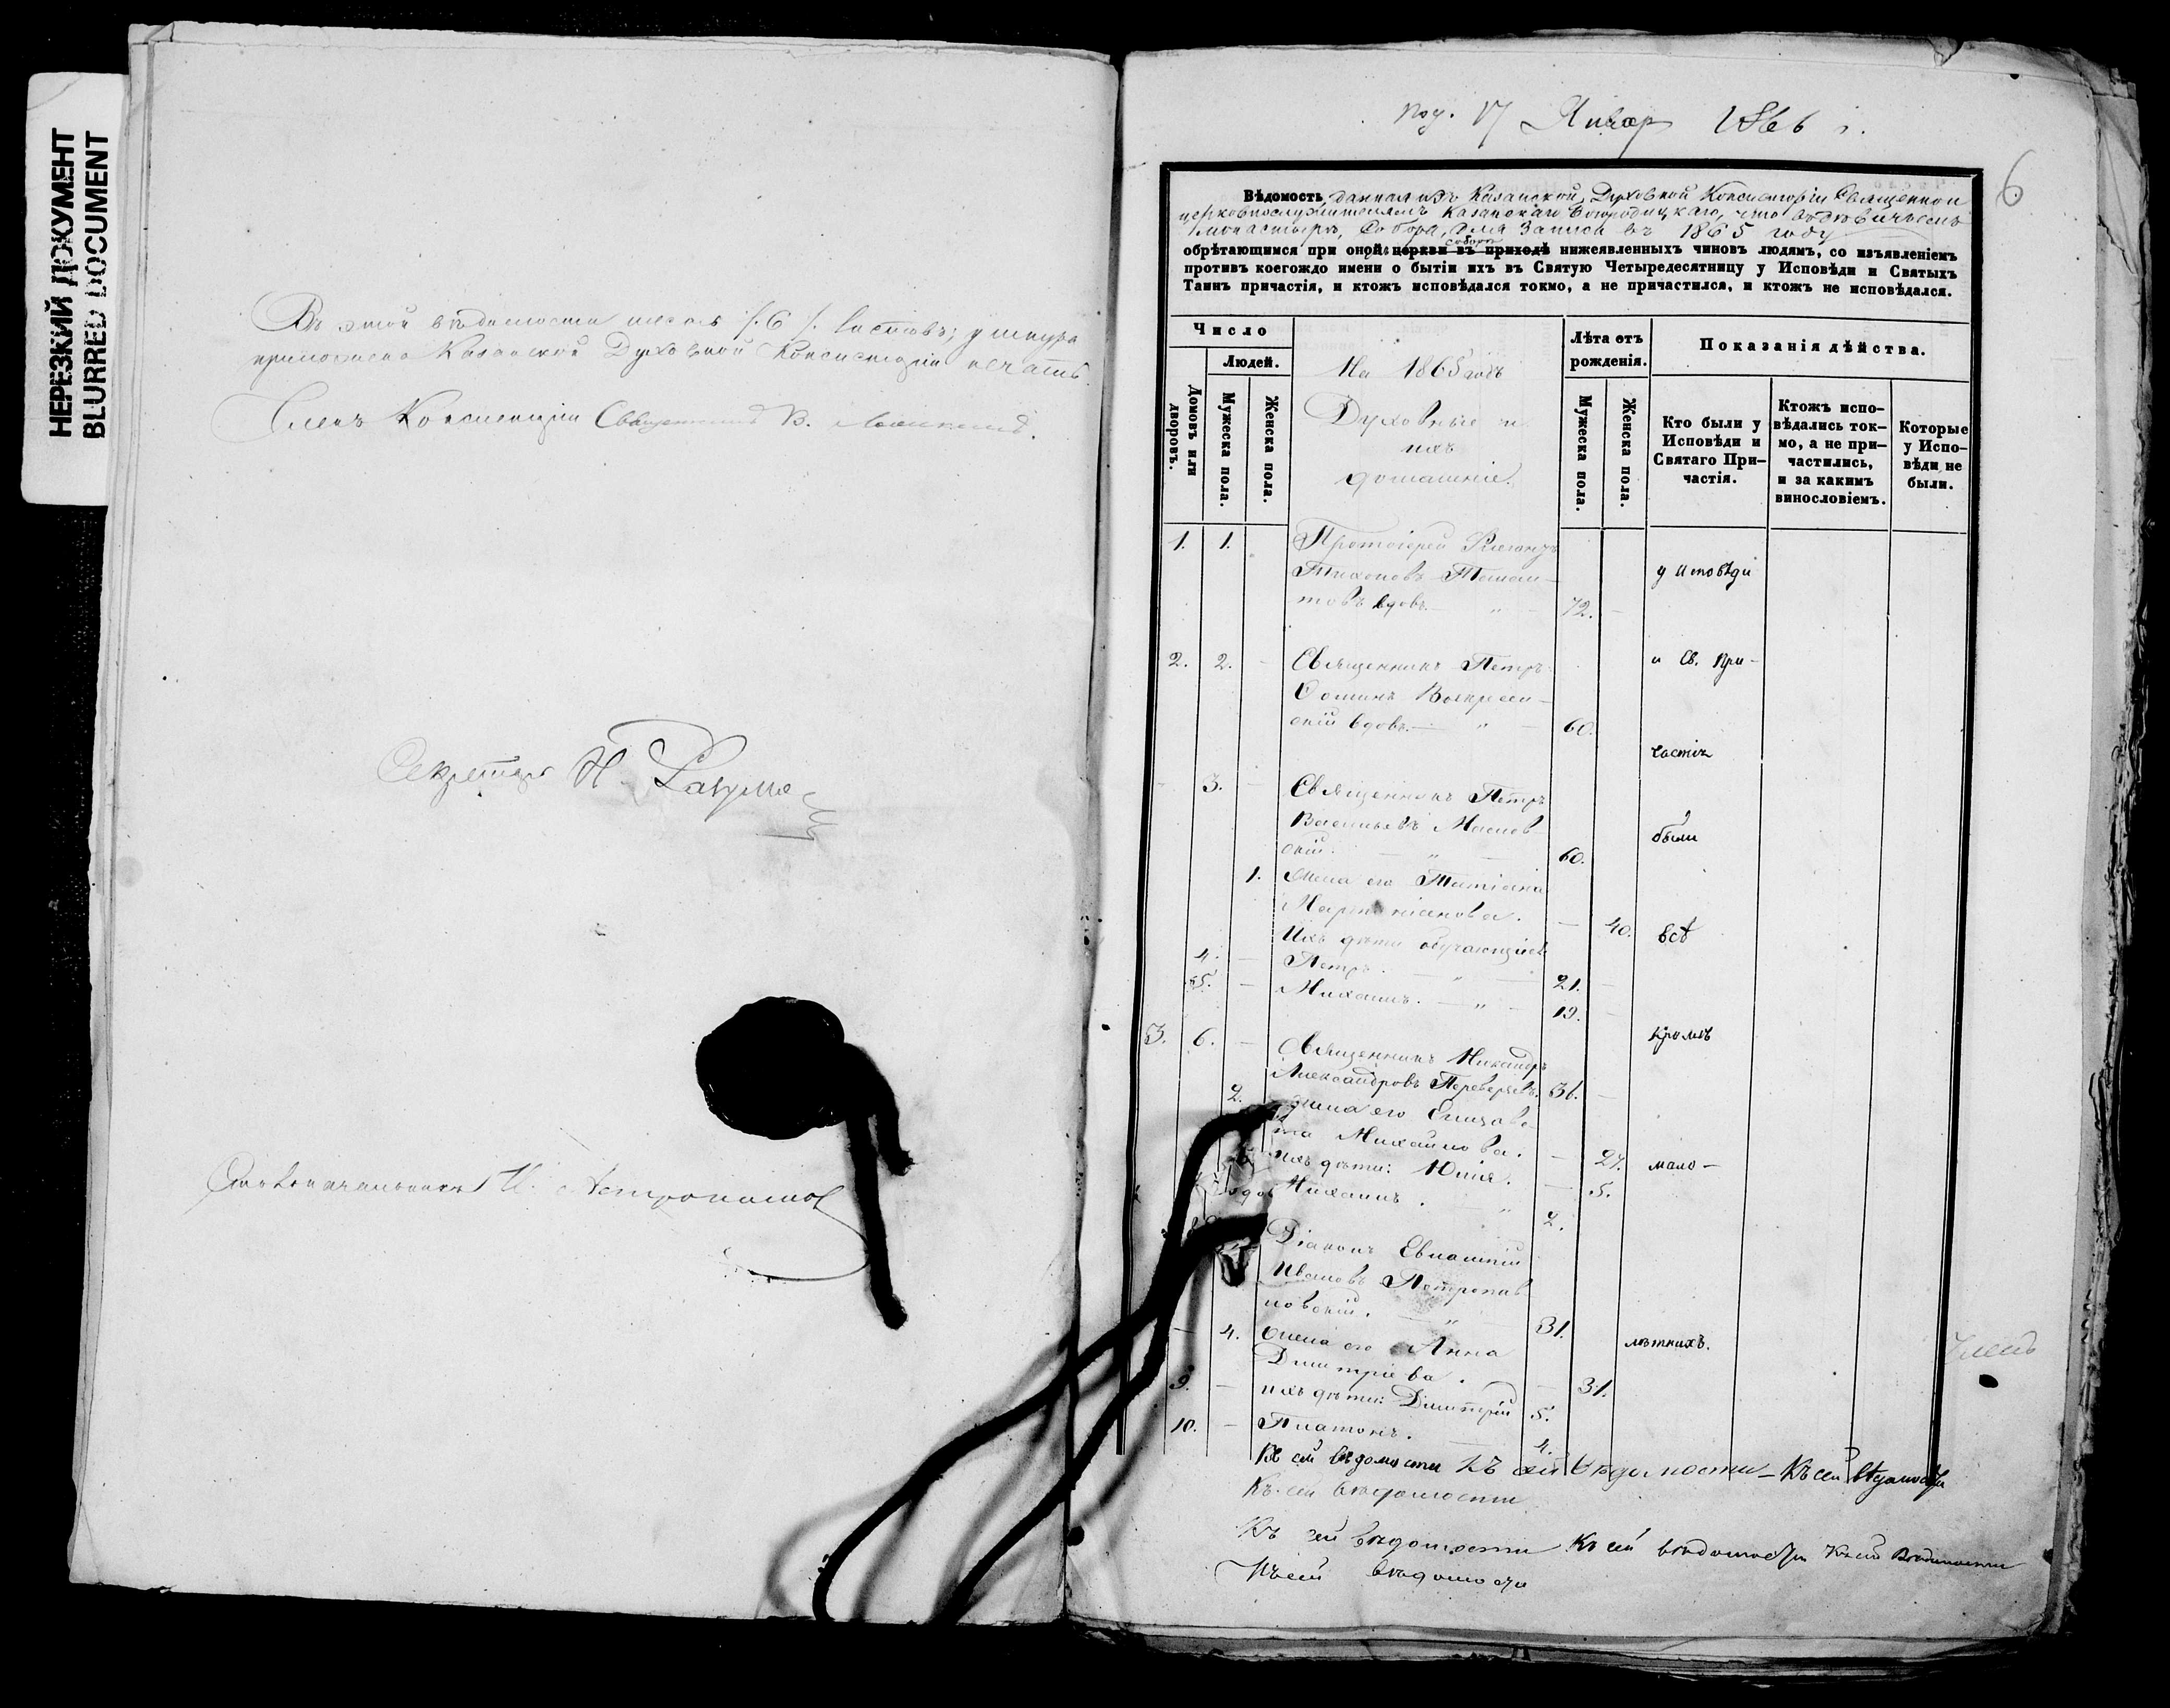 НЕРЕЗКИЙ ДОКУМЕНТ
BLURRED DOCUMENT
Въ этой вѣдомости шесть /.6./. листовъ; у шнура
приложена Казанской Духовной Консисторіи печать.
Членъ Консисторіи Священникъ В.
Секретарь Н.
Столоначальникъ
17 Январ 1866 г.
6
Вѣдомость данная изъ Казанской Духовной Консисторіи Священно и
церковнослужителямъ Казанскаго Богородицкаго, что въ дѣвичьемъ
монастырѣ, Собора, для записи въ 1865 году
соборѣ
обрѣтающимся при оной церкви въ приходѣ нижеявленныхъ чиновъ людямъ, со изъявленіемъ
противъ коегождо имени о бытіи ихъ въ Святую Четыредесятницу у Исповѣди и Святыхъ
Таинъ причастія, и ктожъ исповѣдался токмо, а не причастился, и ктожъ не исповѣдался.
Число
Людей.
Домовъ или дворовъ.
Мужеска пола.
Женска пола.
На 1865 годъ
Духовные и
ихъ
домашніе.
Лѣта отъ рожденія.
Мужеска пола.
Женска пола.
Показанія дѣйства.
Кто были у Исповѣди и Святаго Причастія.
Ктожъ исповѣдались токмо, а не причастились, и за какимъ винословіемъ.
Которые у Исповѣди не были.
1. 1. Протоіерей
Тихоновъ
вдовъ 72. у исповѣди
2. 2. Священникъ Петръ и Св. При-
Ѳоминъ Воскресен-
скій вдовъ. 60.
частія
3. Священникъ Петръ
Васильевъ были
скій. 60.
1. Жена его Татіана
40. всѣ
Ихъ дѣти обучающіеся
4. Петръ. 21.
5. Михаилъ. 19.
3. 6. Священникъ Никандръ кромѣ
Александровъ 36.
2. Жена его Елизаве-
та Михайлова. 27. мало-
ихъ дѣти: Юлія. 5.
Михаилъ. 2.
Діаконъ Евлампій
Ивановъ Петропав-
ловскій. 31.
4. Жена его Анна лѣтнихъ.
Димитріева. 31.
9. ихъ дѣти: Димитрій 5.
10. Платонъ. 4.
Членъ
Къ сей вѣдомости Къ сей вѣдомости - Къ сей вѣдомости
Къ сей вѣдомости
Къ сей вѣдомости Къ сей вѣдомости Къ сей вѣдомости
Къ сей вѣдомости